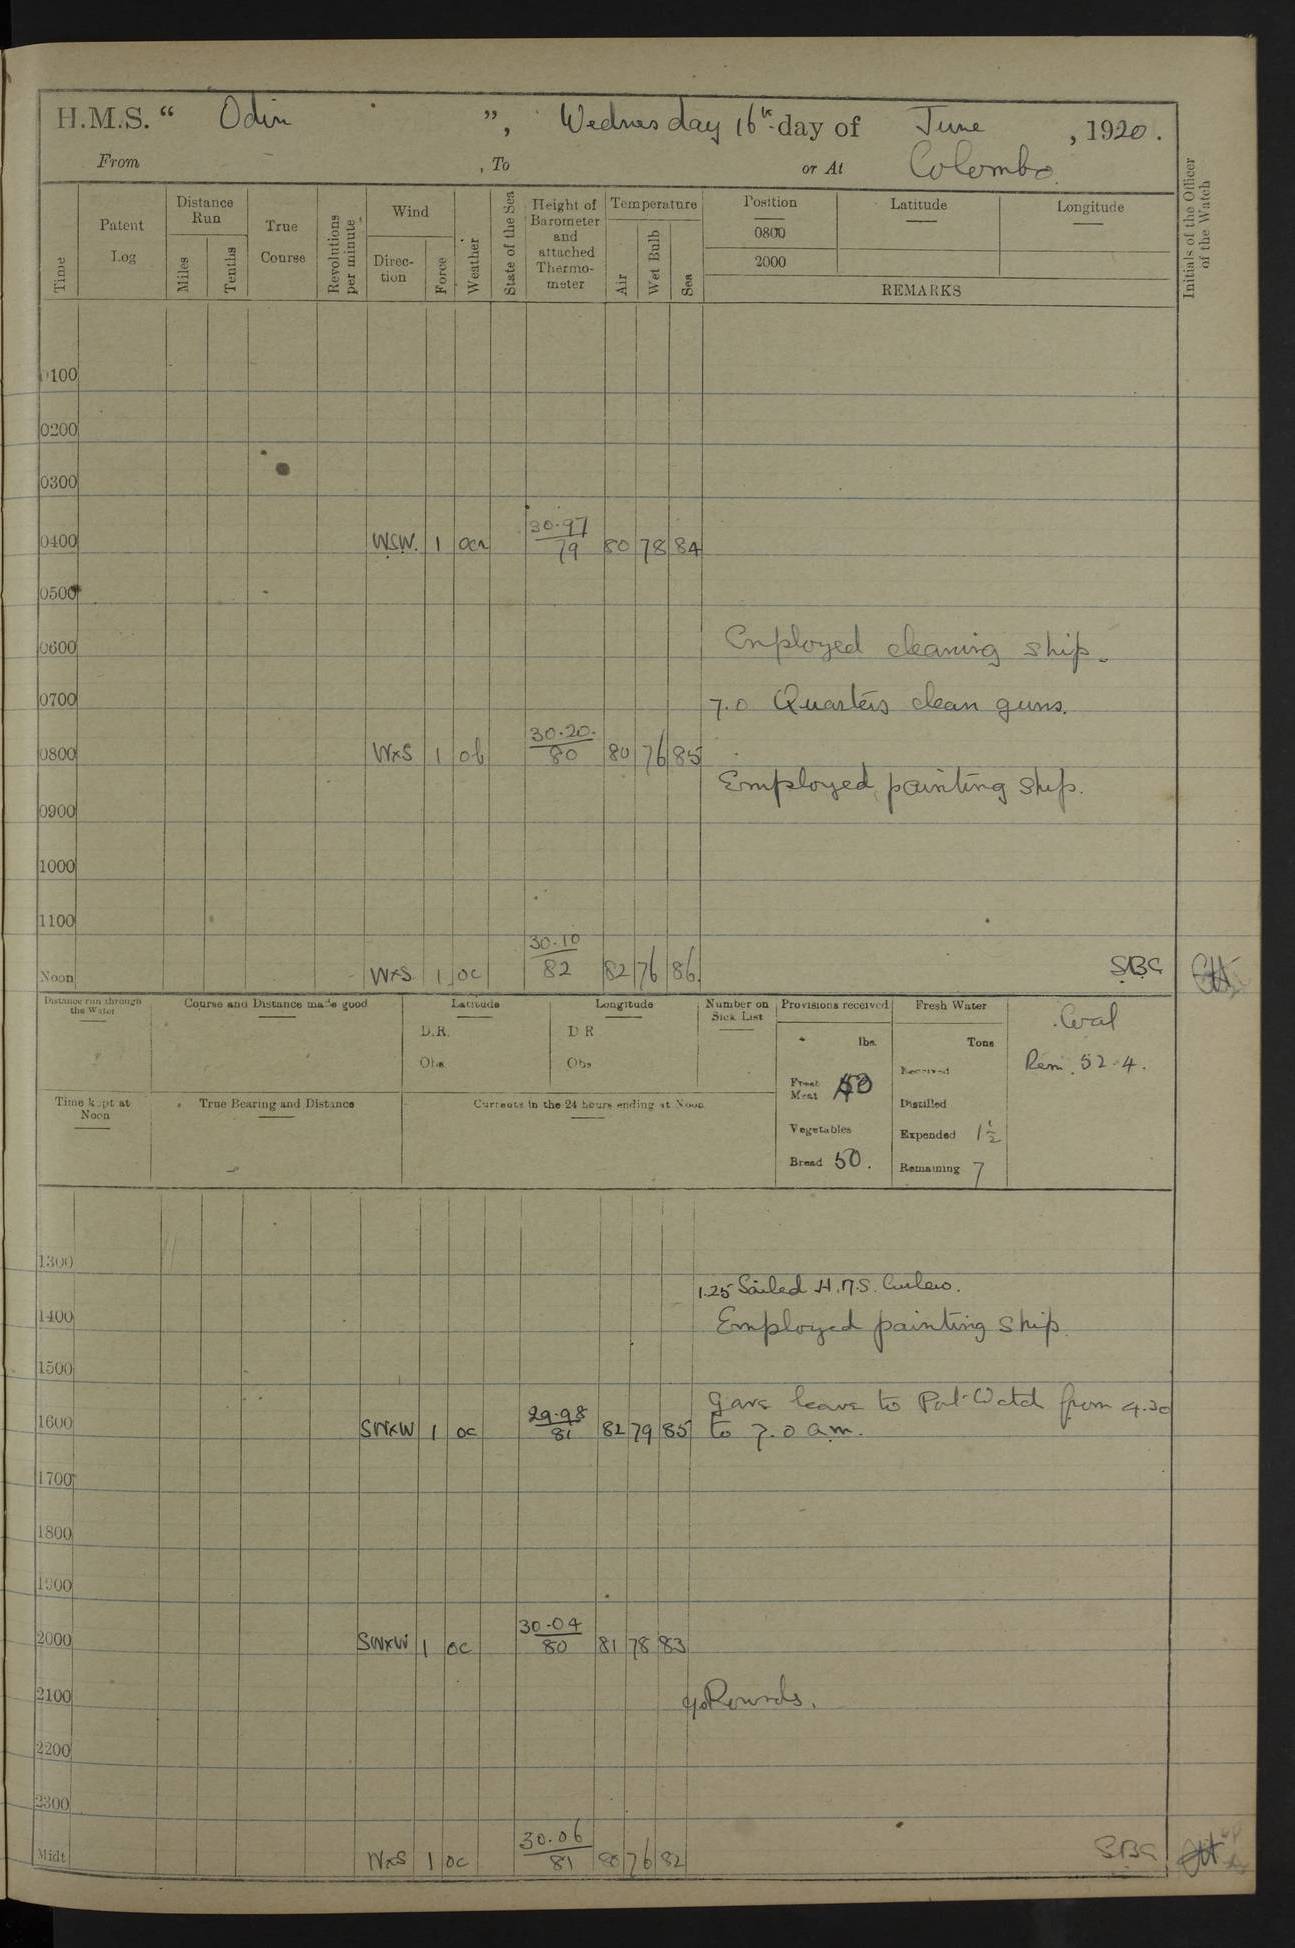 H.M.S. “ Odin ”, Wednesday 16th day of June , 1920.
From , To or At Colombo.
Time
Patent Log
Distance Run
Miles
Tenths
True Course
Revolutions per minute
Wind
Direction
Force
Weather
State of the Sea
Height of Barometer and attached Thermometer
Temperature
Air
Wet Bulb
Sea
Position
0800
2000
Latitude
Longitude
REMARKS
Initials of the Officer of the Watch
0100
0200
0300
0400 WSW. 1 30.97/79 80 78 84
0500
0600 Employed cleaning ship.
0700 7.0 Quarters clean guns.
0800 WxS 1 ob 30.20./80 80 76 85
Employed painting ship.
0900
1000
1100
Noon WxS 1 oc 30.10/82 82 76 86. SBG
Distance run through the Water
Course and Distance made good
Latitude
D.R.
Obs.
Longitude
D R
Obs
Number on Sick List
Provisions received
lbs.
Fresh Meat 50
Vegetables
Bread 50.
Fresh Water
Tons
Received
Distilled
Expended 1½
Remaining 7
Coal
Rem. 52.4.
Time kept at Noon
True Bearing and Distance
Currents in the 24 hours ending at Noon
1300
1.25 Sailed H.M.S. Curlew.
1400 Employed painting ship.
1500
Gave leave to Port Watch from 4.30
1600 SWxW 1 oc 29.98/81 82 79 85 to 7.0 a.m.
1700
1800
1900
2000 SWxW 1 oc 30.04/80 81 78 83
2100 9.0 Rounds.
2200
2300
Midt WxS 1 oc 30.06/81 80 76 82 SBG